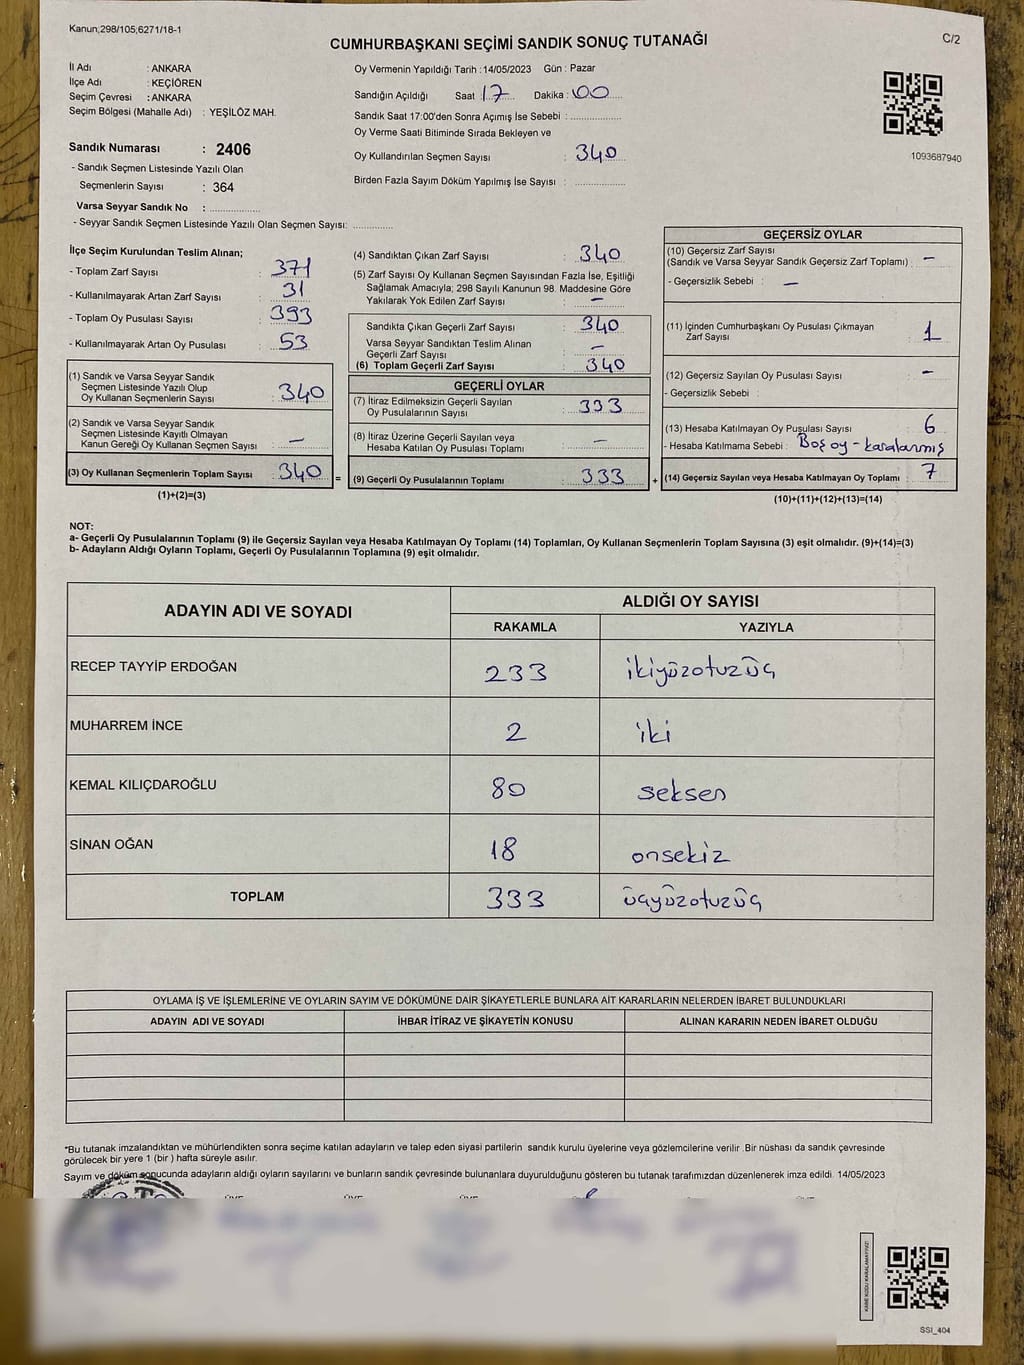 Kanun;298/105;6271/18-1
C/2
CUMHURBAŞKANI SEÇİMİ SANDIK SONUÇ TUTANAĞI
İl Adı : ANKARA
İlçe Adı : KEÇİÖREN
Seçim Çevresi : ANKARA
Seçim Bölgesi (Mahalle Adı) : YEŞİLÖZ MAH.
Sandık Numarası : 2406
- Sandık Seçmen Listesinde Yazılı Olan
Seçmenlerin Sayısı : 364
Varsa Seyyar Sandık No : ..................
- Seyyar Sandık Seçmen Listesinde Yazılı Olan Seçmen Sayısı: ..............
Oy Vermenin Yapıldığı Tarih :14/05/2023 Gün : Pazar
Sandığın Açıldığı Saat : 17 Dakika : 00
Sandık Saat 17:00'den Sonra Açımış İse Sebebi : ..................
Oy Verme Saati Bitiminde Sırada Bekleyen ve
Oy Kullandırılan Seçmen Sayısı : 340
Birden Fazla Sayım Döküm Yapılmış İse Sayısı : ..................
1093687940
İlçe Seçim Kurulundan Teslim Alınan;
- Toplam Zarf Sayısı : 371
- Kullanılmayarak Artan Zarf Sayısı : 31
- Toplam Oy Pusulası Sayısı : 393
- Kullanılmayarak Artan Oy Pusulası : 53
(1) Sandık ve Varsa Seyyar Sandık
Seçmen Listesinde Yazılı Olup
Oy Kullanan Seçmenlerin Sayısı : 340
(2) Sandık ve Varsa Seyyar Sandık
Seçmen Listesinde Kayıtlı Olmayan
Kanun Gereği Oy Kullanan Seçmen Sayısı : —
(3) Oy Kullanan Seçmenlerin Toplam Sayısı : 340 =
(1)+(2)=(3)
(4) Sandıktan Çıkan Zarf Sayısı : 340
(5) Zarf Sayısı Oy Kullanan Seçmen Sayısından Fazla İse, Eşitliği
Sağlamak Amacıyla; 298 Sayılı Kanunun 98. Maddesine Göre
Yakılarak Yok Edilen Zarf Sayısı : —
Sandıkta Çıkan Geçerli Zarf Sayısı : 340
Varsa Seyyar Sandıktan Teslim Alınan
Geçerli Zarf Sayısı : —
(6) Toplam Geçerli Zarf Sayısı : 340
GEÇERLİ OYLAR
(7) İtiraz Edilmeksizin Geçerli Sayılan
Oy Pusulalarının Sayısı : 333
(8) İtiraz Üzerine Geçerli Sayılan veya
Hesaba Katılan Oy Pusulası Toplamı : —
(9) Geçerli Oy Pusulalarının Toplamı : 333 +
GEÇERSİZ OYLAR
(10) Geçersiz Zarf Sayısı
(Sandık ve Varsa Seyyar Sandık Geçersiz Zarf Toplamı) : —
- Geçersizlik Sebebi : —
(11) İçinden Cumhurbaşkanı Oy Pusulası Çıkmayan
Zarf Sayısı : 1
(12) Geçersiz Sayılan Oy Pusulası Sayısı : —
- Geçersizlik Sebebi :
(13) Hesaba Katılmayan Oy Pusulası Sayısı : 6
- Hesaba Katılmama Sebebi : Boş oy - karalanmış
(14) Geçersiz Sayılan veya Hesaba Katılmayan Oy Toplamı : 7
(10)+(11)+(12)+(13)=(14)
NOT:
a- Geçerli Oy Pusulalarının Toplamı (9) ile Geçersiz Sayılan veya Hesaba Katılmayan Oy Toplamı (14) Toplamları, Oy Kullanan Seçmenlerin Toplam Sayısına (3) eşit olmalıdır. (9)+(14)=(3)
b- Adayların Aldığı Oyların Toplamı, Geçerli Oy Pusulalarının Toplamına (9) eşit olmalıdır.
ADAYIN ADI VE SOYADI ALDIĞI OY SAYISI
RAKAMLA YAZIYLA
RECEP TAYYİP ERDOĞAN 233 ikiyüzotuzüç
MUHARREM İNCE 2 iki
KEMAL KILIÇDAROĞLU 80 seksen
SİNAN OĞAN 18 onsekiz
TOPLAM 333 üçyüzotuzüç
OYLAMA İŞ VE İŞLEMLERİNE VE OYLARIN SAYIM VE DÖKÜMÜNE DAİR ŞİKAYETLERLE BUNLARA AİT KARARLARIN NELERDEN İBARET BULUNDUKLARI
ADAYIN ADI VE SOYADI İHBAR İTİRAZ VE ŞİKAYETİN KONUSU ALINAN KARARIN NEDEN İBARET OLDUĞU
*Bu tutanak imzalandıktan ve mühürlendikten sonra seçime katılan adayların ve talep eden siyasi partilerin sandık kurulu üyelerine veya gözlemcilerine verilir .Bir nüshası da sandık çevresinde
görülecek bir yere 1 (bir ) hafta süreyle asılır.
Sayım ve döküm sonucunda adayların aldığı oyların sayılarını ve bunların sandık çevresinde bulunanlara duyurulduğunu gösteren bu tutanak tarafımızdan düzenlenerek imza edildi. 14/05/2023
KARE KODU KARALAMAYINIZ!
SSI_404